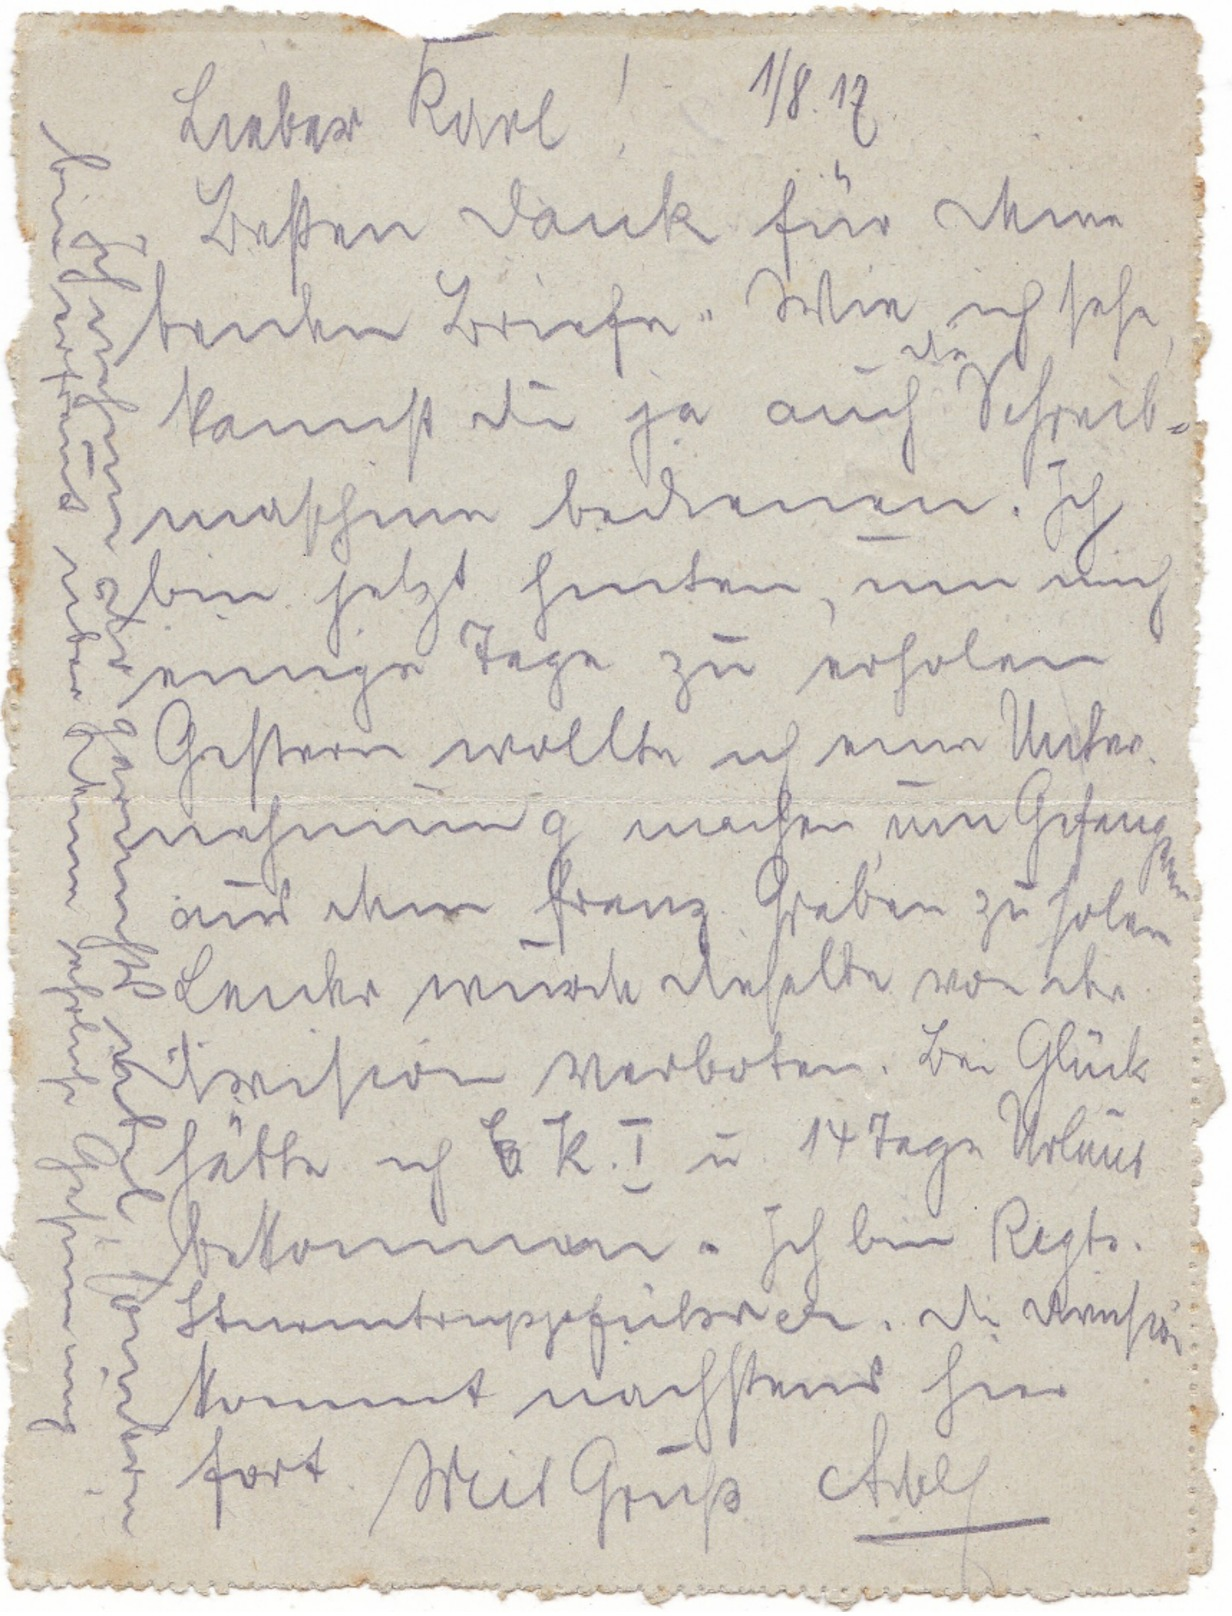 Lieber Karl! 1/8.17.
Besten Dank für deine
beiden Briefe. Wie ich sehe,
kannst du ja auch die Schreib-
maschine bedienen. Ich
bin jetzt hinten, um mich
einige Tage zu erholen
Gestern wollte ich eine Unter-
nehmung machen, um Gefangene
aus dem franz. Graben zu holen
Leider wurde dieselbe von der
Division verboten. Bei Glück
hätte ich E K. I u. 14 Tage Urlaub
bekommen. Ich bin Regts.
Sturmtruppführer. Die Division
kommt nächstens hier
fort. Mit Gruß Adolf
Ich nehme dir garnichts übel, sondern
bin über deine ehrliche Gesinnung